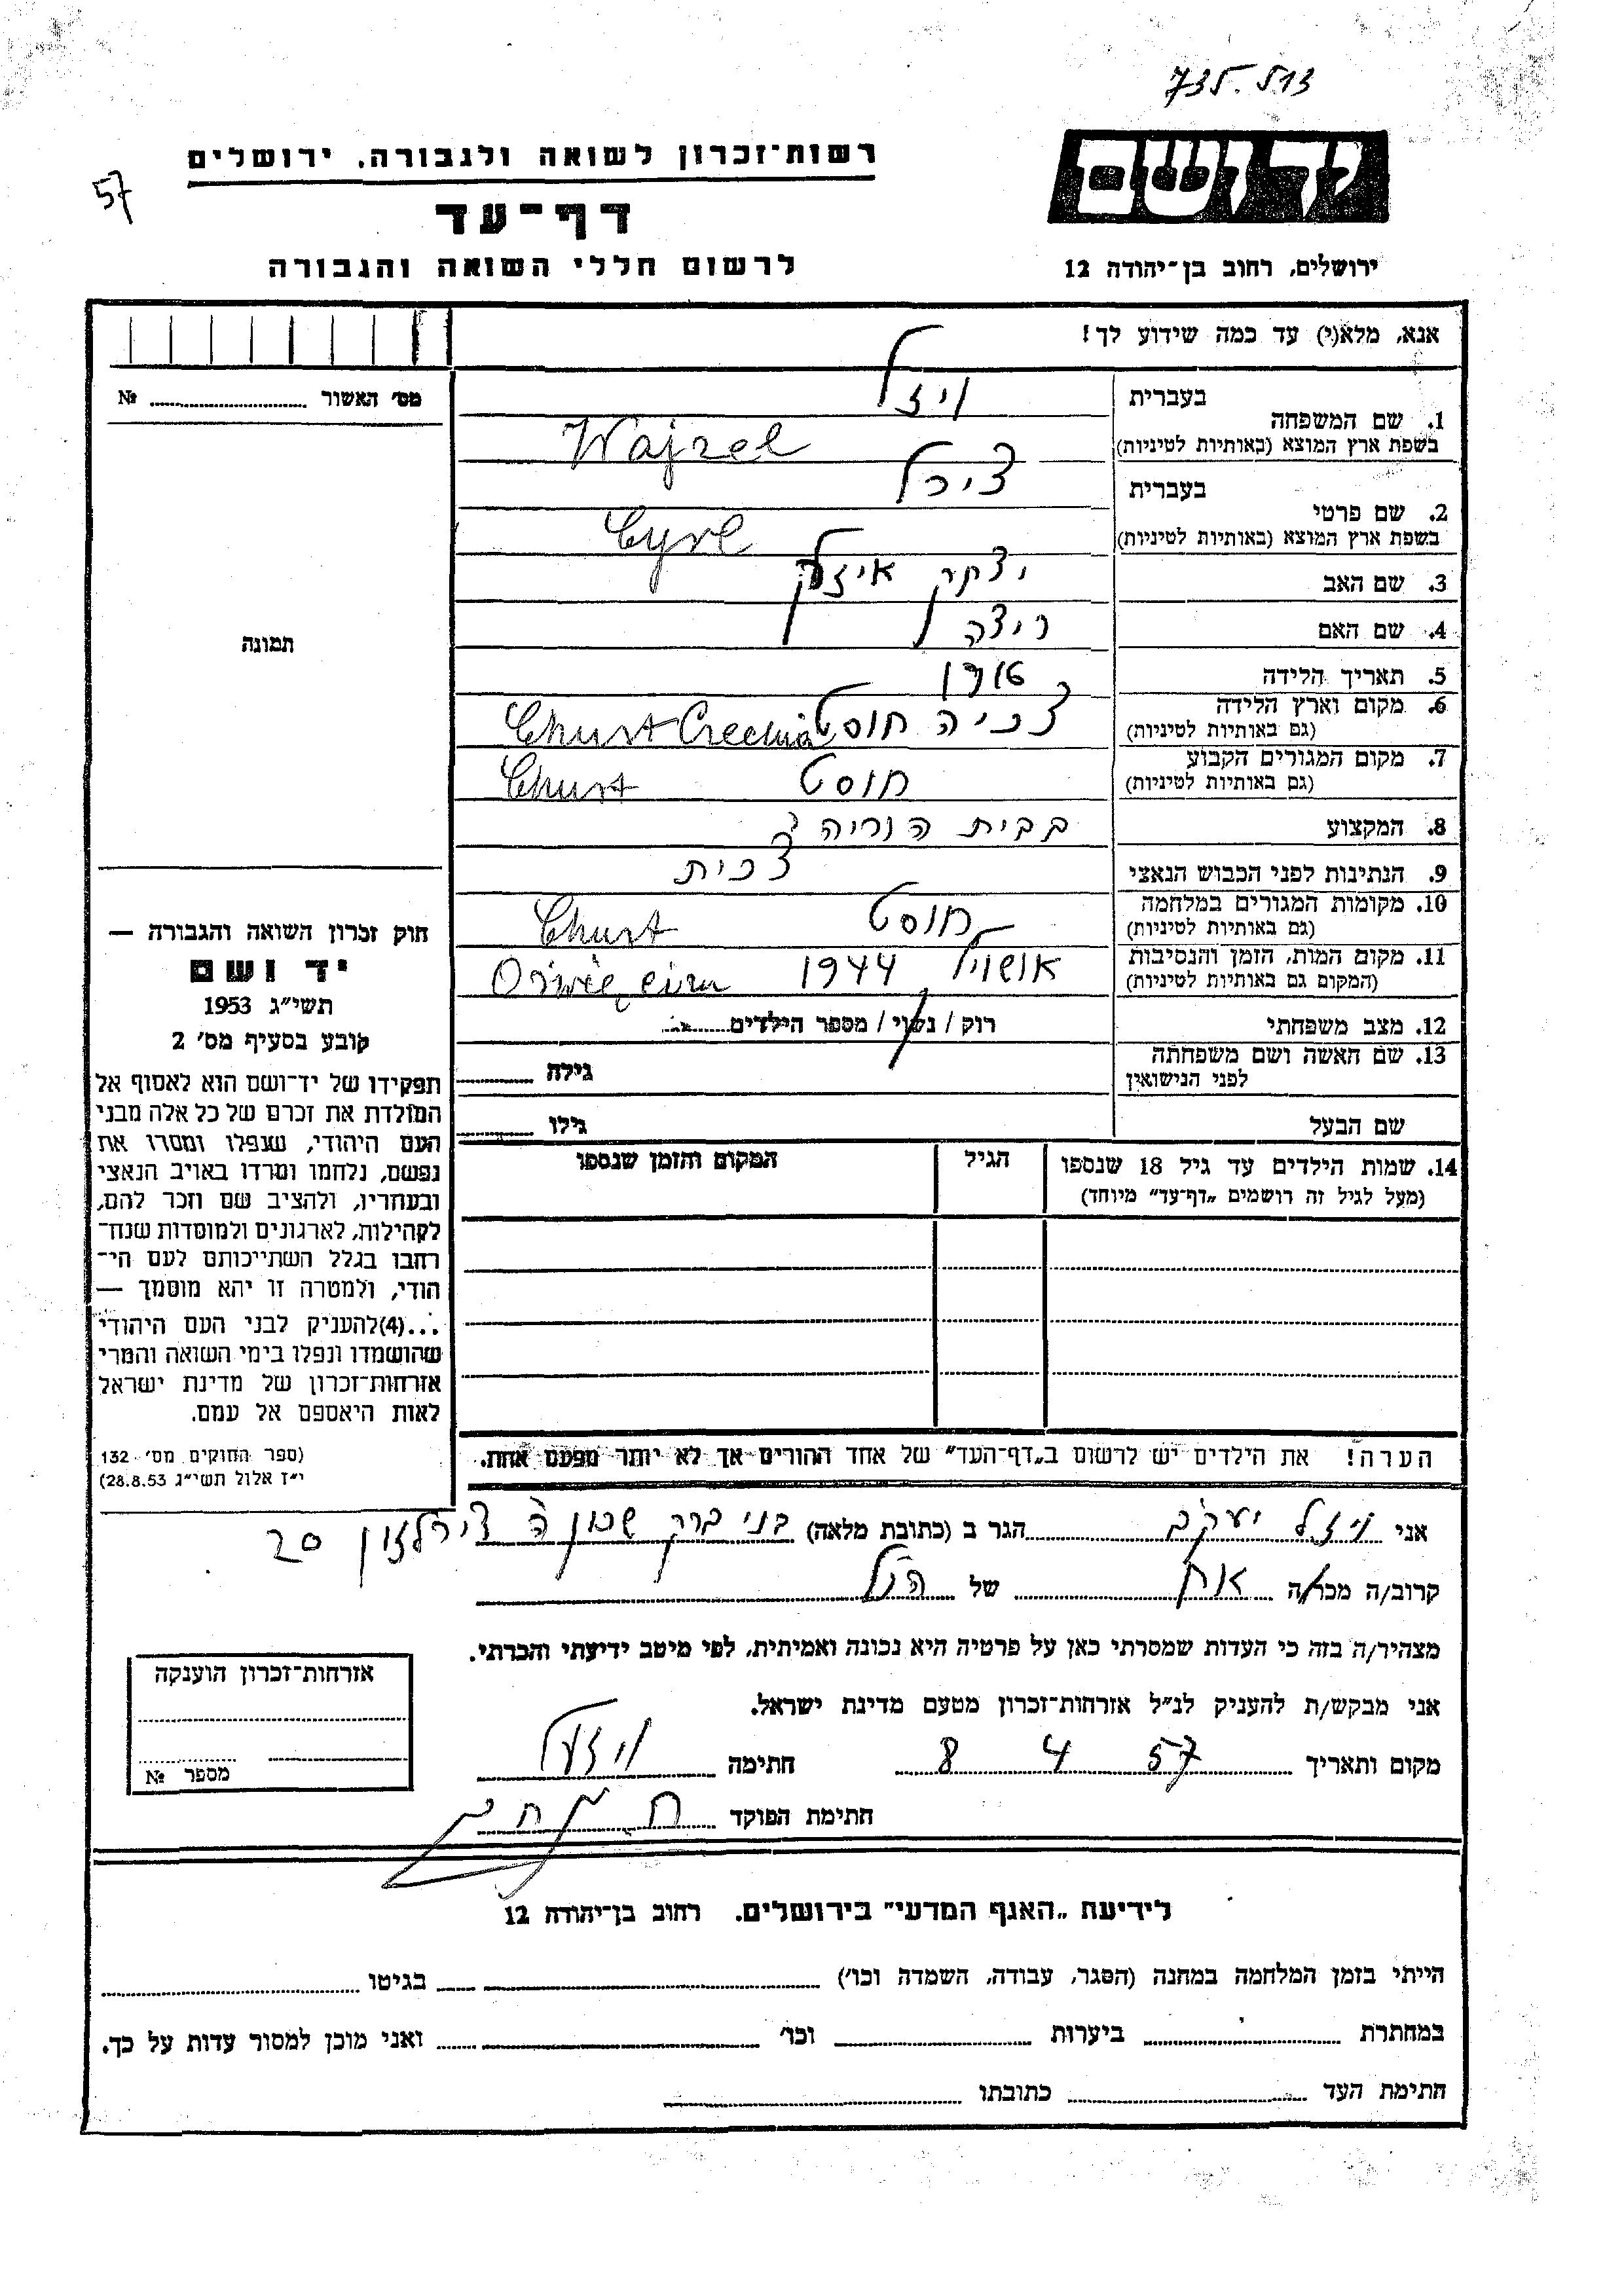 57
רשות־זכרון לשואה ולגבורה, ירושלים
דף־עד
לרשום חללי השואה והגבורה
יד ושם
ירושלים, רחוב בן־יהודה 12
אנא, מלא(י) עד כמה שידוע לך!
מס' האשור № 
1. שם המשפחה בעברית ויזל
בשפת ארץ המוצא (באותיות לטיניות) Wajzel
2. שם פרטי בעברית צירל
בשפת ארץ המוצא (באותיות לטיניות) Cyrl
3. שם האב יצקק אייזק
4. שם האם
5. תאריך הלידה
6. מקום וארץ הלידה (גם באותיות לטיניות) צכיה חוסט Chust Czechia
7. מקום המגורים הקבוע (גם באותיות לטיניות) חוסט Chust
8. המקצוע בבית הוריה
9. הנתינות לפני הכבוש הנאצי צכית
10. מקומות המגורים במלחמה (גם באותיות לטיניות) חוסט Chust
11. מקום המות, הזמן והנסיבות (המקום גם באותיות לטיניות) 1944 Oświęcim
12. מצב משפחתי רוק / נשוי / מספר הילדים
13. שם האשה ושם משפחתה לפני הנישואין גילה
שם הבעל גילו
14. שמות הילדים עד גיל 18 שנספו
(מעל לגיל זה רושמים „דף־עד" מיוחד)
הגיל
המקום והזמן שנספו
תמונה
חוק זכרון השואה והגבורה —
יד ושם
תשי"ג 1953
קובע בסעיף מס' 2
תפקידו של יד־ושם הוא לאסוף אל
המולדת את זכרם של כל אלה מבני
העם היהודי, שנפלו ומסרו את
נפשם, נלחמו ומרדו באויב הנאצי
ובעוזריו, ולהציב שם וזכר להם,
לקהילות, לארגונים ולמוסדות שנח־
רבו בגלל השתייכותם לעם הי־
הודי, ולמטרה זו יהא מוסמך —
...(4) להעניק לבני העם היהודי
שהושמדו ונפלו בימי השואה והמרי
אזרחות־זכרון של מדינת ישראל
לאות היאספם אל עמם.
(ספר החוקים מס' 132
י"ז אלול תשי"ג 28.8.53)
הערה! את הילדים יש לרשום ב„דף־העד" של אחד ההורים אך לא יותר מפעם אחת.
אני ויזל יעקב הגר ב (כתובת מלאה) בני ברק שכון ה 20
קרוב/ה מכר/ה אח של הנ"ל
מצהיר/ה בזה כי העדות שמסרתי כאן על פרטיה היא נכונה ואמיתית, לפי מיטב ידיעתי והכרתי.
אני מבקש/ת להעניק לנ"ל אזרחות־זכרון מטעם מדינת ישראל.
מקום ותאריך 8 4 57 חתימה ויזל
חתימת הפוקד
אזרחות־זכרון הוענקה
מספר №
לידיעת „האגף המדעי" בירושלים, רחוב בן־יהודה 12
הייתי בזמן המלחמה במחנה (הסגר, עבודה, השמדה וכו') בגיטו
במחתרת ביערות וכו' ואני מוכן למסור עדות על כך.
חתימת העד כתובתו